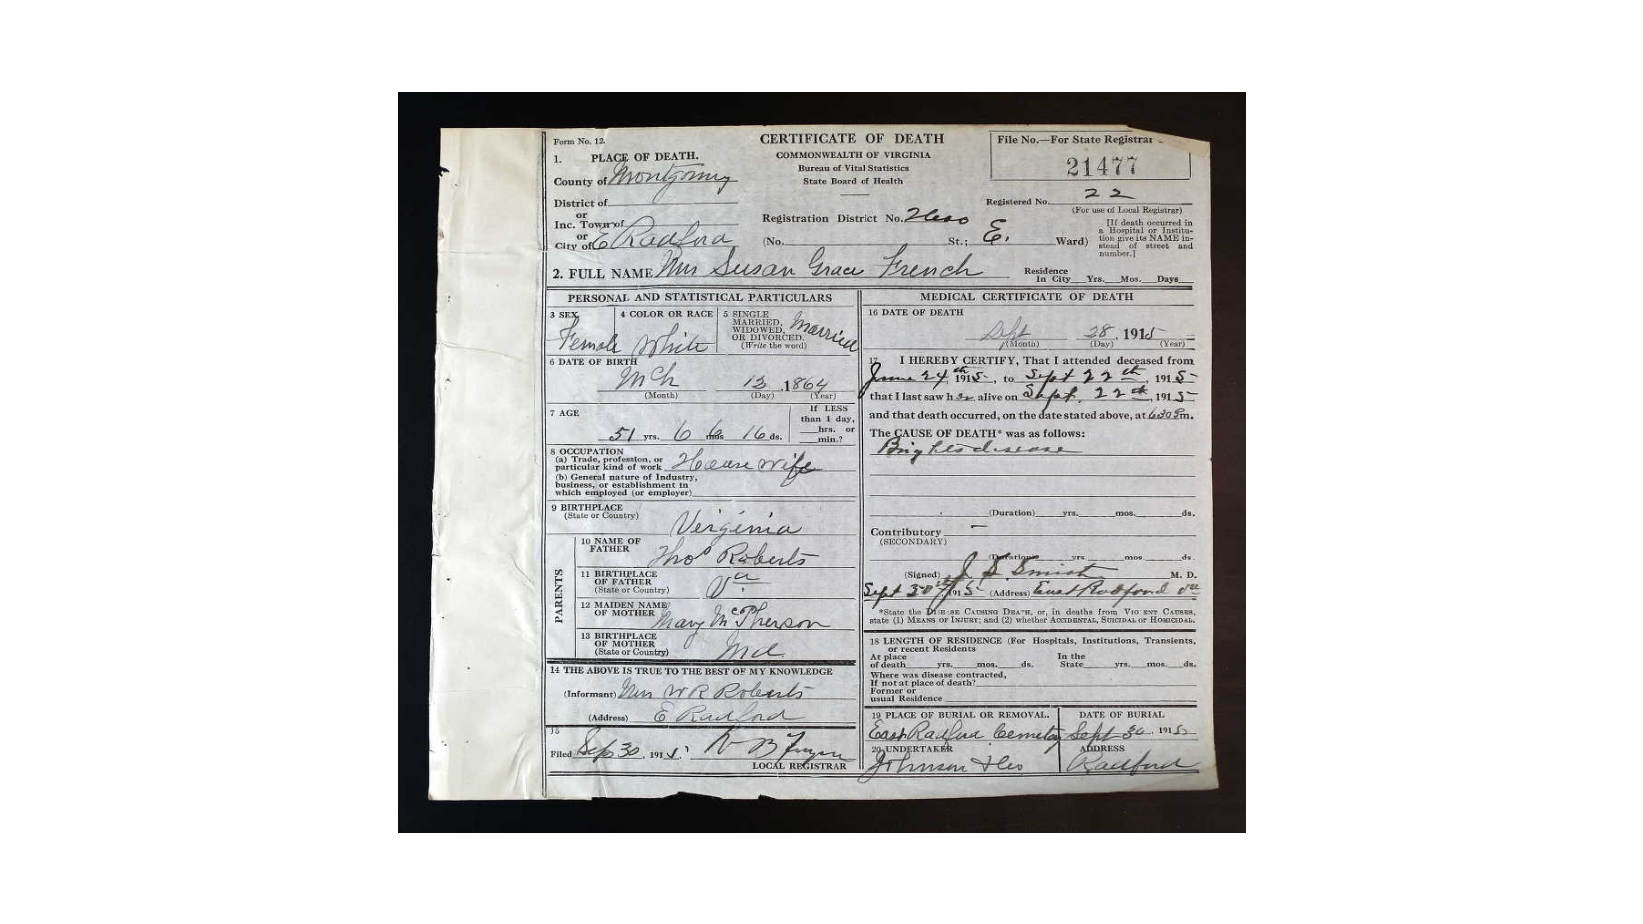 Form No. 12.
CERTIFICATE OF DEATH
COMMONWEALTH OF VIRGINIA
Bureau of Vital Statistics
State Board of Health
File No.—For State Registrar
21477
1. PLACE OF DEATH.
County of Montgomry
District of
or
Inc. Town of
or
City of E Radford
Registration District No.
Registered No. 22
(For use of Local Registrar)
(No. St.; E. Ward)
[If death occurred in a Hospital or Institution give its NAME instead of street and number.]
2. FULL NAME Mrs Susan Grace French
Residence In City Yrs. Mos. Days
PERSONAL AND STATISTICAL PARTICULARS
3 SEX Female
4 COLOR OR RACE White
5 SINGLE MARRIED, WIDOWED, OR DIVORCED. (Write the word) Married
6 DATE OF BIRTH
Mch 12, 1864
(Month) (Day) (Year)
7 AGE
51 yrs. 6 mos 16 ds.
If LESS than 1 day, hrs. or min.?
8 OCCUPATION
(a) Trade, profession, or particular kind of work House wife
(b) General nature of Industry, business, or establishment in which employed (or employer)
9 BIRTHPLACE
(State or Country) Virginia
PARENTS
10 NAME OF FATHER Thos Roberts
11 BIRTHPLACE OF FATHER (State or Country) Va
12 MAIDEN NAME OF MOTHER Mary McPherson
13 BIRTHPLACE OF MOTHER (State or Country) Md
14 THE ABOVE IS TRUE TO THE BEST OF MY KNOWLEDGE
(Informant) Mrs W R Roberts
(Address) E Radford
15
Filed Sep 30, 1915
LOCAL REGISTRAR
MEDICAL CERTIFICATE OF DEATH
16 DATE OF DEATH
Sept 28, 1915
(Month) (Day) (Year)
17 I HEREBY CERTIFY, That I attended deceased from
June 24th 1915, to Sept 22th, 1915
that I last saw her alive on Sept. 22th, 1915
and that death occurred, on the date stated above, at 630 P m.
The CAUSE OF DEATH* was as follows:
Brights disease
(Duration) yrs. mos. ds.
Contributory —
(SECONDARY)
(Duration) yrs mos ds
(Signed) J. S. Smith M. D.
Sept 30th 1915 (Address) East Radford Va
*State the DISEASE CAUSING DEATH, or, in deaths from VIOLENT CAUSES, state (1) MEANS OF INJURY; and (2) whether ACCIDENTAL, SUICIDAL or HOMICIDAL.
18 LENGTH OF RESIDENCE (For Hospitals, Institutions, Transients, or recent Residents
At place of death yrs. mos. ds. In the State yrs. mos. ds.
Where was disease contracted,
If not at place of death?
Former or
usual Residence
19 PLACE OF BURIAL OR REMOVAL. DATE OF BURIAL
East Radford Cemetery Sept 30, 1915
20 UNDERTAKER ADDRESS
Johnson Radford